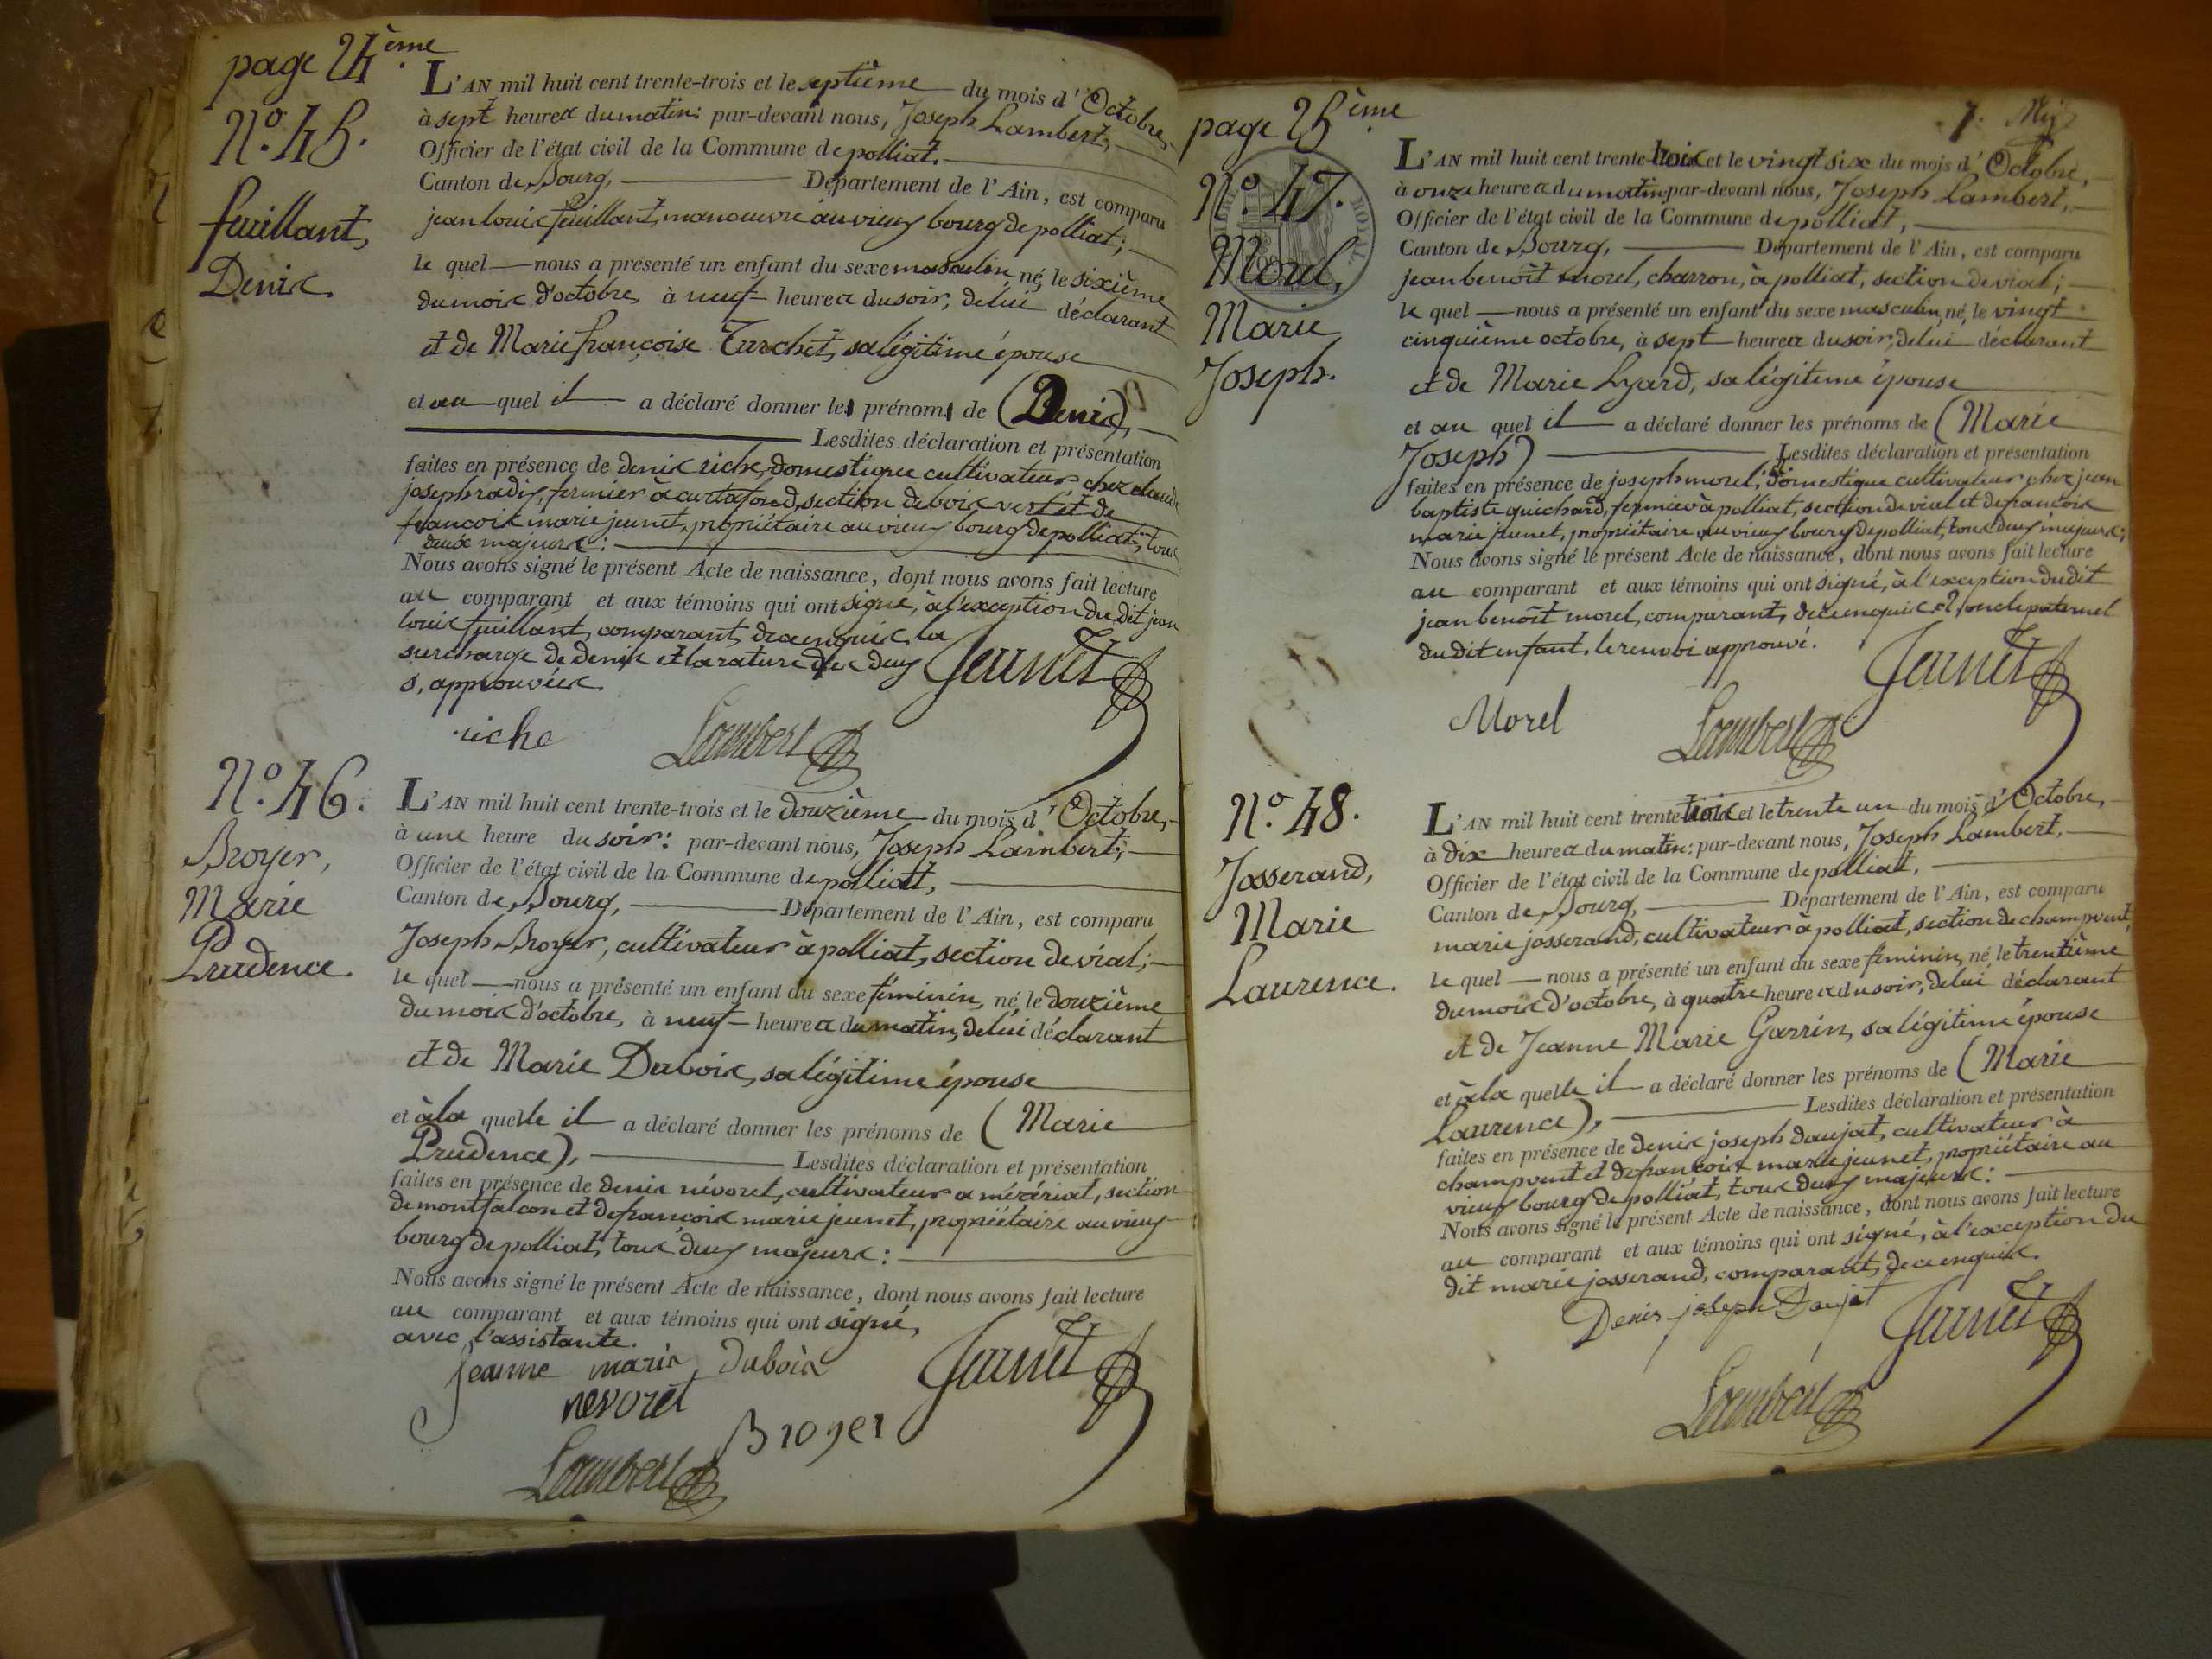 page 24ème.
N° 45.
feuillant,
Denis.
L'AN mil huit cent trente-trois et le septième du mois d'Octobre,
à sept heures du matin: par-devant nous, Joseph Lambert,
Officier de l'état civil de la Commune de polliat,
Canton de Bourg, Département de l'Ain, est comparu
jean louis feuillant, manoeuvre au vieux bourg de polliat;
le quel nous a présenté un enfant du sexe masculin né, le sixième
du mois d'octobre, à neuf heures du soir, de lui déclarant
et de Marie françoise Turchet, sa légitime épouse
et au quel il a déclaré donner les prénoms de (Denis),
Lesdites déclaration et présentation
faites en présence de denis riche, domestique cultivateur chez claude
joseph radix, fermier à curtafond, section de bois vert et de
francois marie jeunet, propriétaire au vieux bourg de polliat, tous
deux majeurs:
Nous avons signé le présent Acte de naissance, dont nous avons fait lecture
au comparant et aux témoins qui ont signé, à l'exception du dit jean
louis feuillant, comparant, de ce enquis. la
surcharge de denis et la rature des deux
s, approuvées.
Jeunet
riche
Lambert
N° 46.
Broyer,
Marie
Prudence.
L'AN mil huit cent trente-trois et le douzième du mois d'Octobre,
à une heure du soir: par-devant nous, Joseph Lambert,
Officier de l'état civil de la Commune de polliat,
Canton de Bourg, Département de l'Ain, est comparu
Joseph Broyer, cultivateur à polliat, section de vial;
le quel nous a présenté un enfant du sexe féminin, né, le douzième
du mois d'octobre, à neuf heures du matin, de lui déclarant
et de Marie Dubois, sa légitime épouse
et à la quelle il a déclaré donner les prénoms de (Marie
Prudence),
Lesdites déclaration et présentation
faites en présence de denis névoret, cultivateur a mézériat, section
de montfalcon et de francois marie jeunet, propriétaire au vieux
bourg de polliat, tous deux majeurs:
Nous avons signé le présent Acte de naissance, dont nous avons fait lecture
au comparant et aux témoins qui ont signé,
avec l'assistante.
jeanne marie dubois
Jeunet
nevoret
Broyer
Lambert
page 25ème
7.
N° 47.
Morel,
Marie
Joseph.
L'AN mil huit cent trente-trois et le vingt six du mois d'Octobre,
à onze heures du matin par-devant nous, Joseph Lambert,
Officier de l'état civil de la Commune de polliat,
Canton de Bourg, Département de l'Ain, est comparu
jean benoît morel, charron, à polliat, section de vial;
le quel nous a présenté un enfant du sexe masculin, né, le vingt
cinquième octobre, à sept heures du soir, de lui déclarant
et de Marie Lyard, sa légitime épouse
et au quel il a déclaré donner les prénoms de (Marie
Joseph)
Lesdites déclaration et présentation
faites en présence de joseph morel, domestique cultivateur chez jean
baptiste guichard, fermier à polliat, section de vial et de francois
marie jeunet, propriétaire au vieux bourg de polliat, tous deux majeurs;
Nous avons signé le présent Acte de naissance, dont nous avons fait lecture
au comparant et aux témoins qui ont signé, à l'exception du dit
jean benoît morel, comparant, de ce enquis oncle paternel
du dit enfant. le renvoi approuvé.
Jeunet
Morel
Lambert
N° 48.
Josserand,
Marie
Laurence.
L'AN mil huit cent trente-trois et le trente un du mois d'Octobre,
à dix heures du matin: par-devant nous, Joseph Lambert,
Officier de l'état civil de la Commune de polliat,
Canton de Bourg, Département de l'Ain, est comparu
marie josserand, cultivateur à polliat, section de champvent,
le quel nous a présenté un enfant du sexe féminin, né, le trentième
du mois d'octobre, à quatre heures du soir, de lui déclarant
et de Jeanne Marie Garrin, sa légitime épouse
et à la quelle il a déclaré donner les prénoms de (Marie
Laurence),
Lesdites déclaration et présentation
faites en présence de denis joseph daujat, cultivateur à
champvent et de francois marie jeunet, propriétaire au
vieux bourg de polliat, tous deux majeurs:
Nous avons signé le présent Acte de naissance, dont nous avons fait lecture
au comparant et aux témoins qui ont signé, à l'exception du
dit marie josserand, comparant, de ce enquis.
Denis joseph Daujat
Jeunet
Lambert